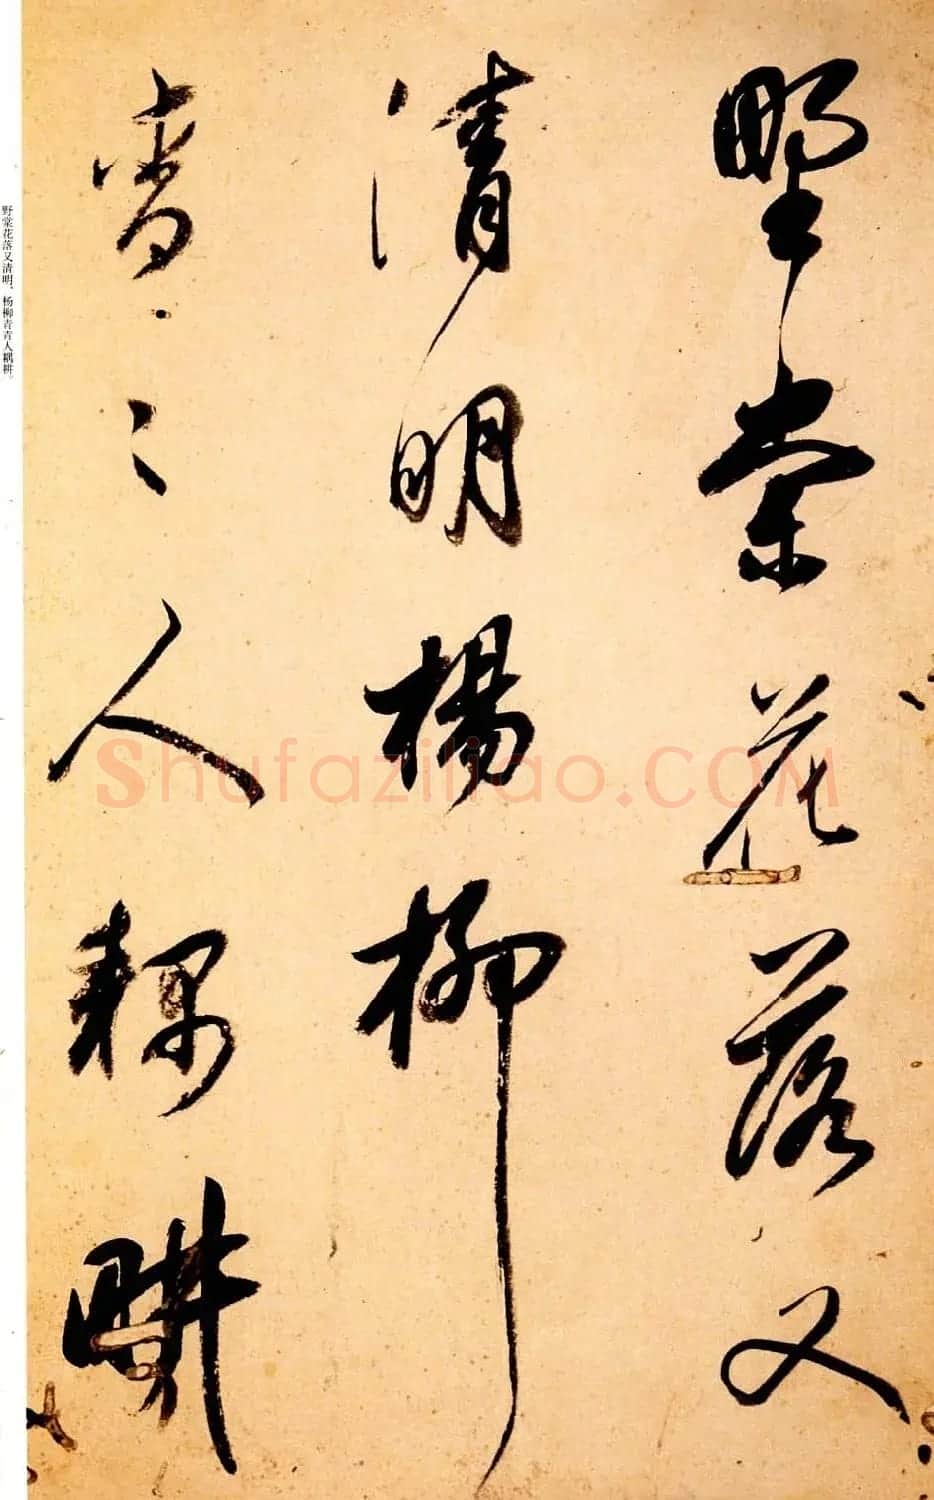 野棠花落又
清明楊柳
青〻人耦畊
野棠花落又清明，杨柳青青人耦耕。
Shufaziliao.COM